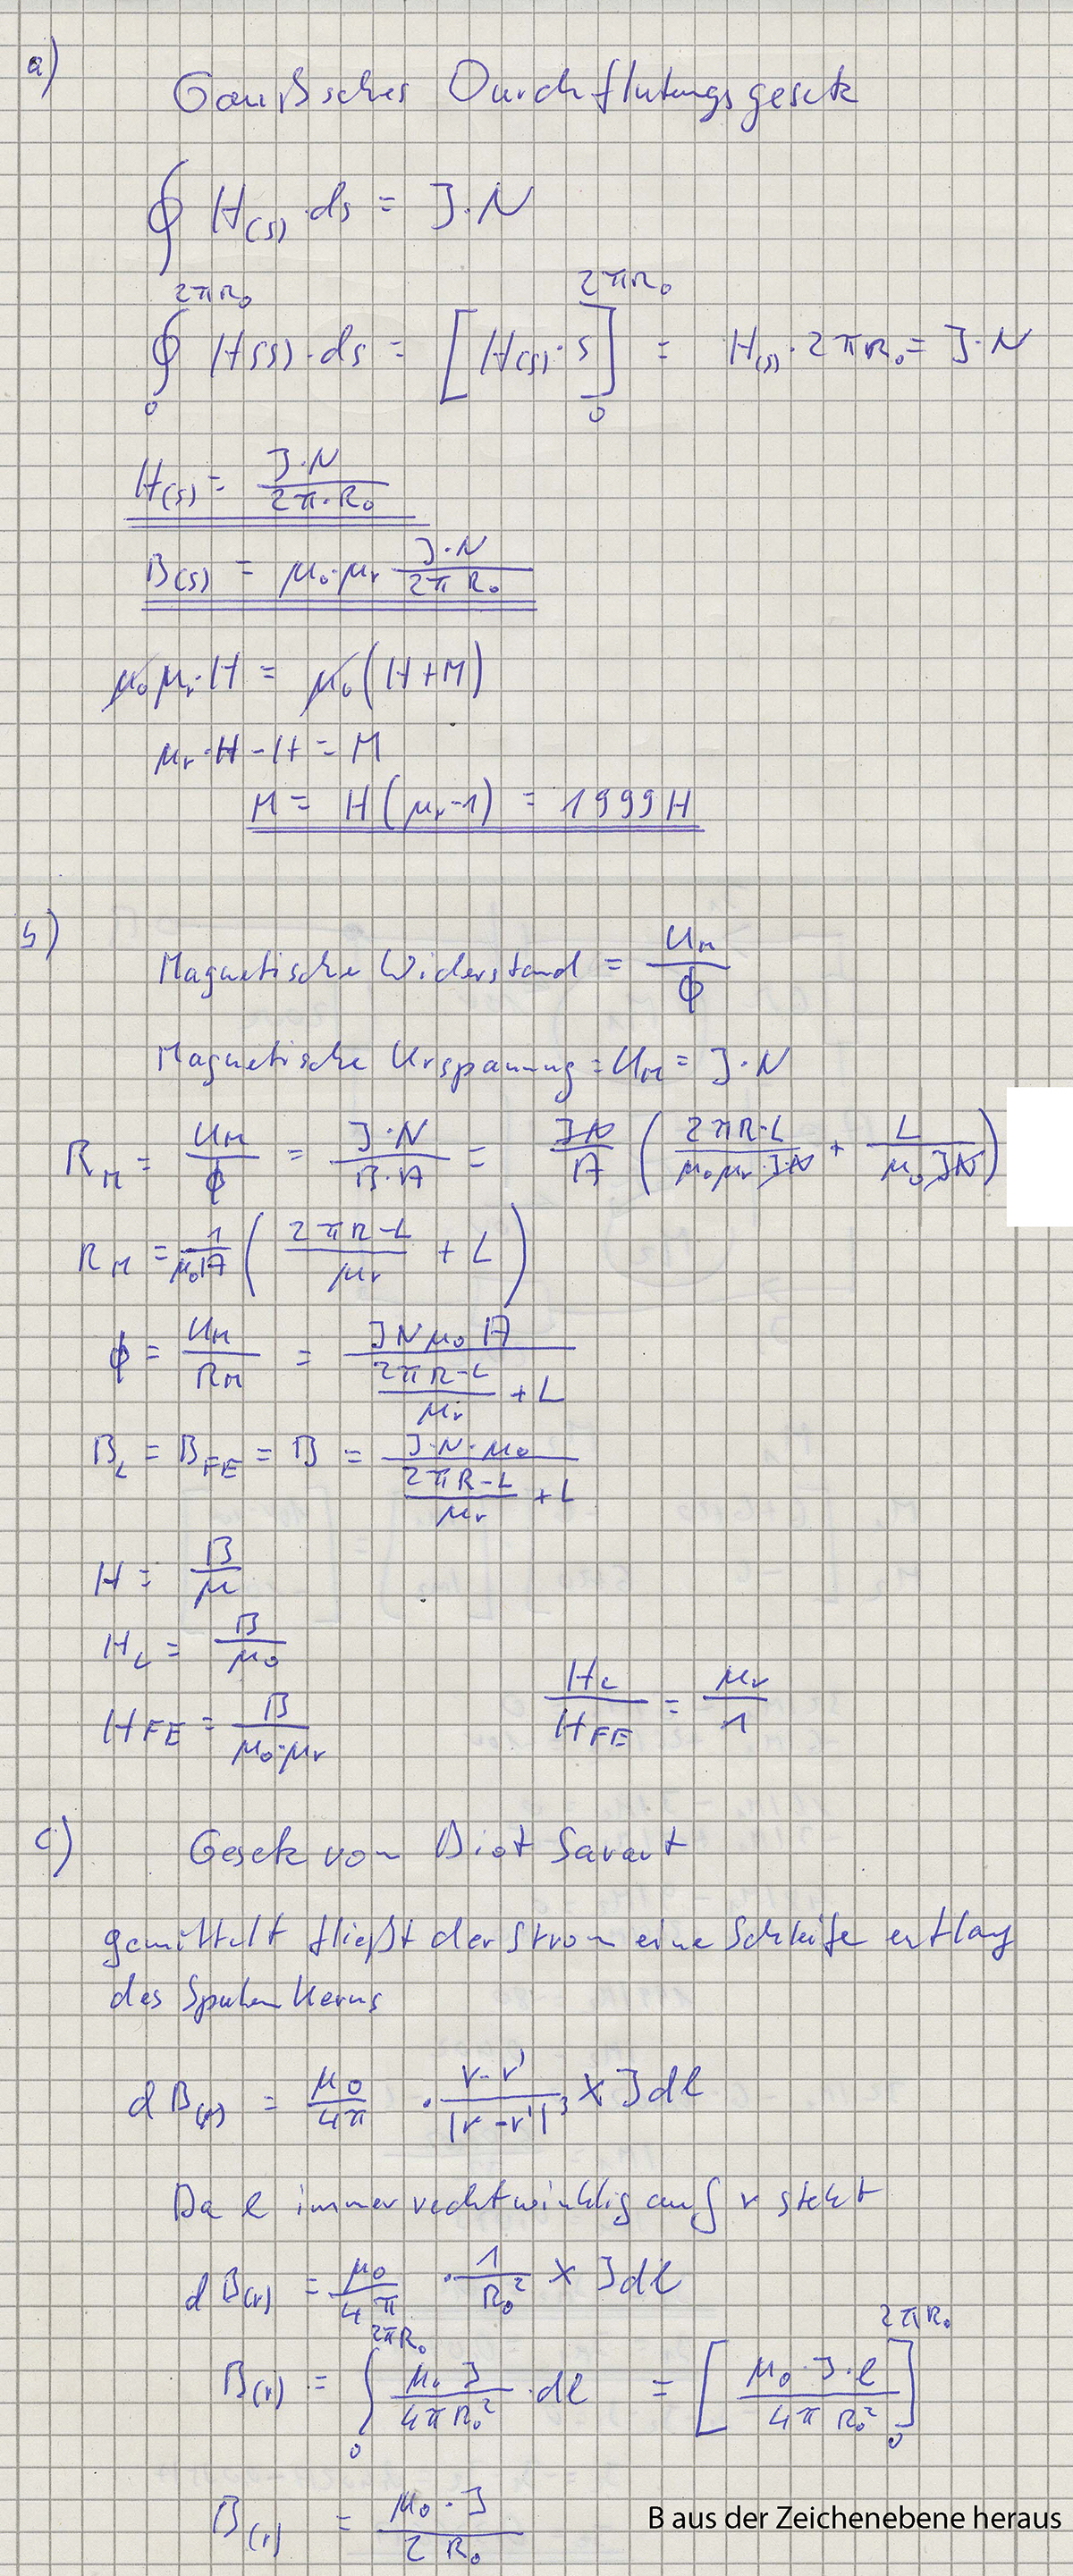 a)
Gaußsches Durchflutungsgesetz
∮ H(s) · ds = I · N
∮₀^{2πR₀} H(s) · ds = [H(s) · s]₀^{2πR₀} = H(s) · 2πR₀ = I · N
H(s) = I·N / 2π·R₀
B(s) = μ₀·μr I·N / 2πR₀
μ₀μr·H = μ₀(H+M)
μr·H - H = M
M = H(μr-1) = 1999H
b)
Magnetische Widerstand = U_M / ϕ
Magnetische Urspannung = U_M = I·N
R_M = U_M / ϕ = I·N / B·A = IN / A ( 2πR-L / μ₀μr·IN + L / μ₀IN )
R_M = 1 / μ₀A ( 2πR-L / μr + L )
ϕ = U_M / R_M = INμ₀A / ( 2πR-L / μr + L )
B_L = B_FE = B = I·N·μ₀ / ( 2πR-L / μr + L )
H = B / μ
H_L = B / μ₀
H_FE = B / μ₀·μr
H_L / H_FE = μr / 1
c)
Gesetz von Biot Savart
gemittelt fließt der Strom eine Schleife entlang
des Spulen Kerns
dB(r) = μ₀ / 4π · r-r' / |r-r'|³ × I dl
Da l immer rechtwinklig auf r steht
dB(r) = μ₀ / 4π · 1 / R₀² × I dl
B(r) = ∫₀^{2πR₀} μ₀ I / 4πR₀² · dl = [ μ₀·I·l / 4πR₀² ]₀^{2πR₀}
B(r) = μ₀·I / 2R₀
B aus der Zeichenebene heraus